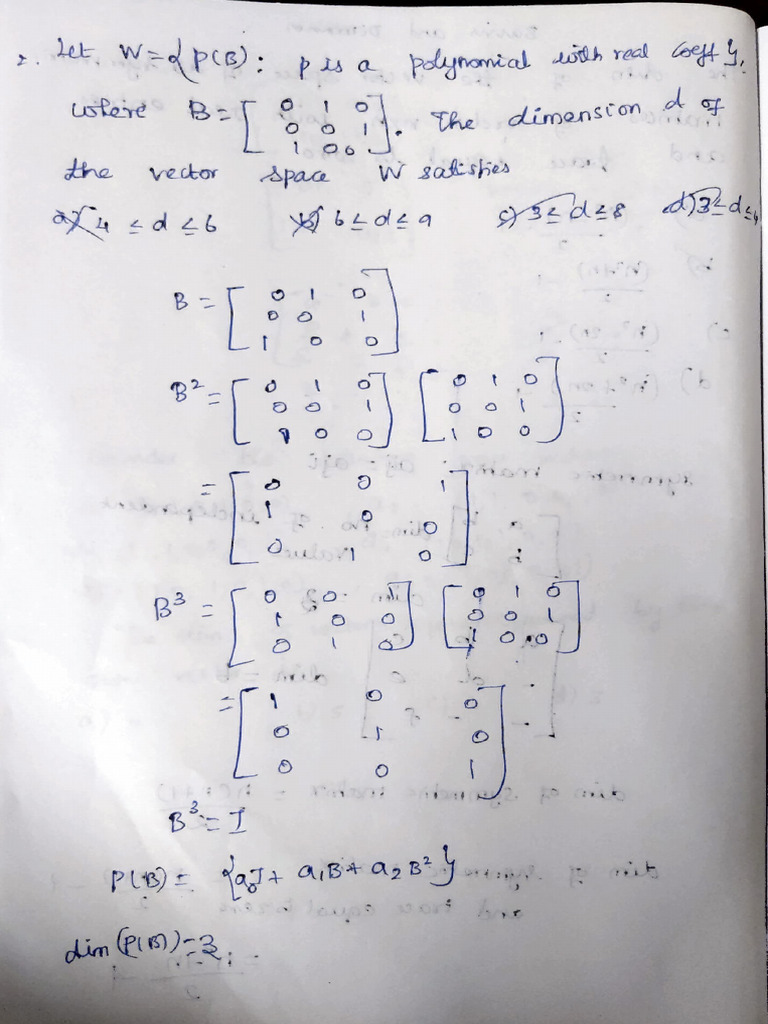 2. Let W = { P(B) : p is a polynomial with real coeff }.
where B = [ 0 1 0
0 0 1
1 0 0 ]. The dimension d of
the vector space W satisfies
a) 4 ≤ d ≤ 6 b) 6 ≤ d ≤ 9 c) 3 ≤ d ≤ 8 d) 3 ≤ d ≤ 4
B = [ 0 1 0
0 0 1
1 0 0 ]
B² = [ 0 1 0 ] [ 0 1 0
0 0 1 ] [ 0 0 1
1 0 0 ] [ 1 0 0 ]
= [ 0 0 1
1 0 0
0 1 0 ]
B³ = [ 0 0 1 ] [ 0 1 0
1 0 0 ] [ 0 0 1
0 1 0 ] [ 1 0 0 ]
= [ 1 0 0
0 1 0
0 0 1 ]
B³ = I
P(B) = { a₀I + a₁B + a₂B² }
dim (P(B)) = 3